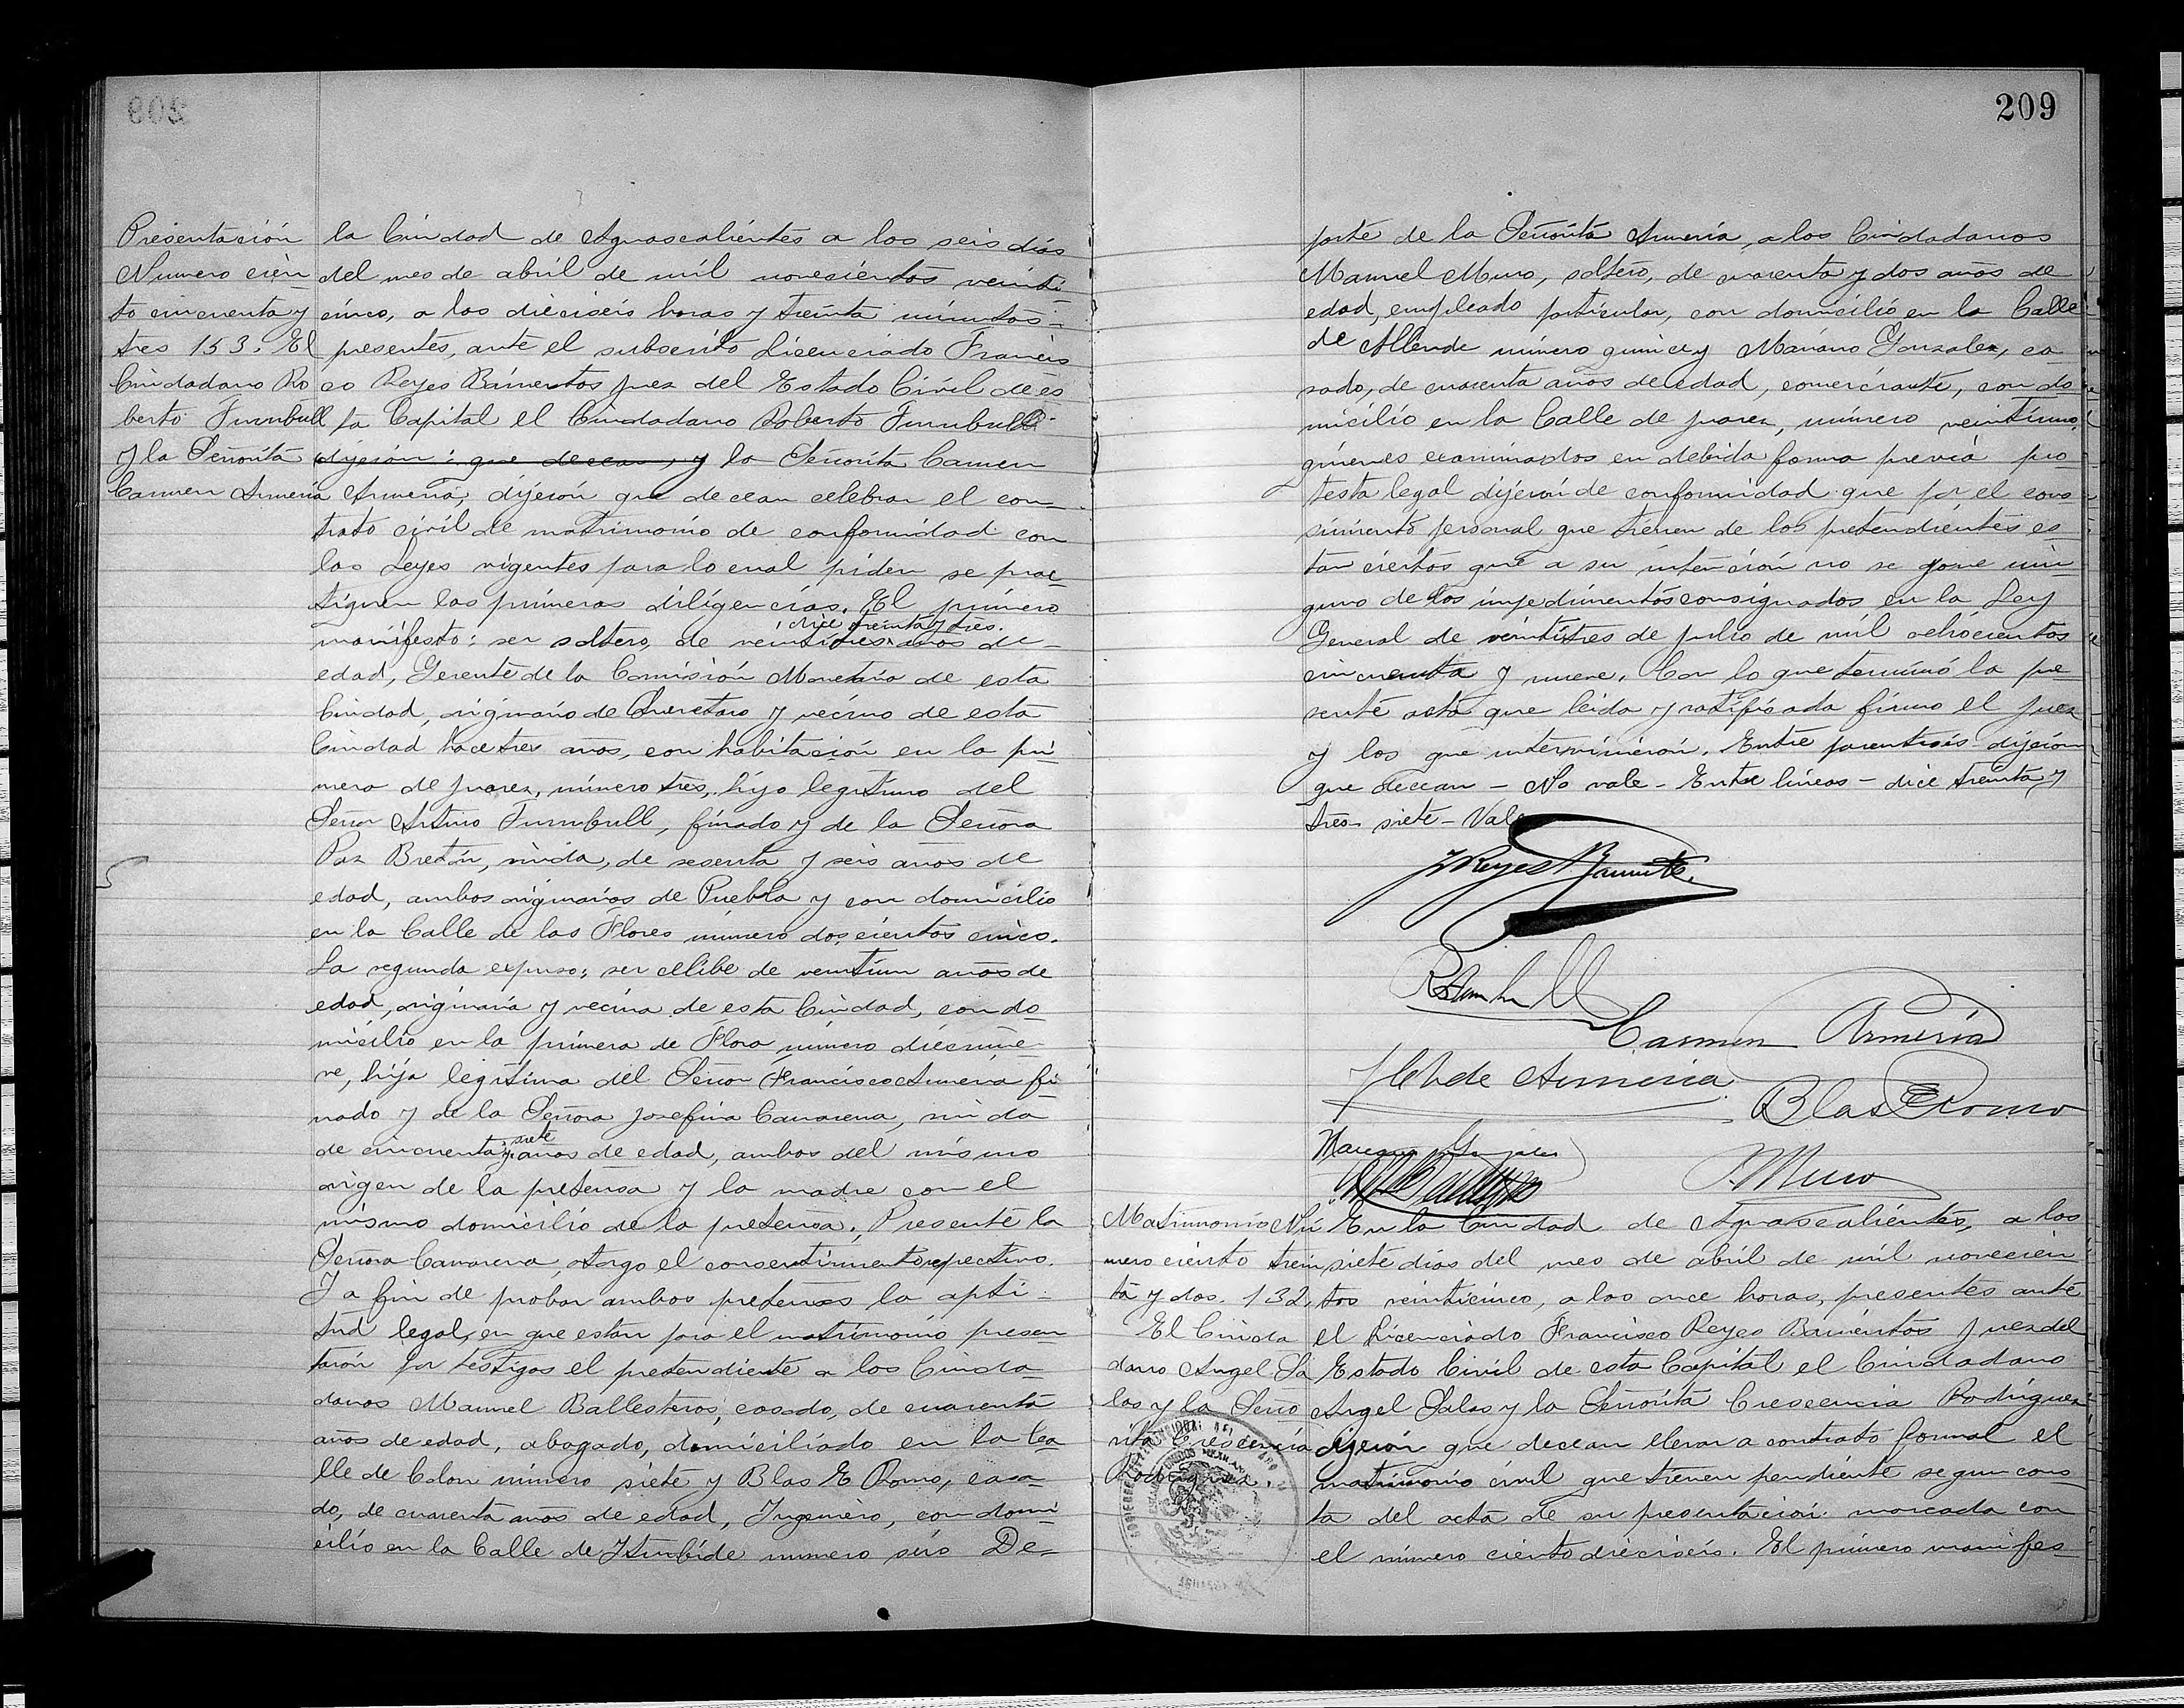 209
Presentación
Numero cien
to cincuenta y
tres 153. El
Ciudadano Ro
berto Turnbull
y la Señorita
Carmen Armeria
la Ciudad de Aguascalientes a los seis días
del mes de abril de mil novecientos veinti
cinco, a las dieciseis horas y treinta minutos-
presentes, ante el subscrito Licenciado Francis
co Reyes Barrientos juez del Estado Civil de es
ta Capital el Ciudadano Roberto Turnbull
dijerón: que desean, y la Señorita Carmen
Armeria, dijerón que desean celebrar el con-
trato civil de matrimonio de conformidad con
las Leyes vigentes para lo cual piden se prac
tiquen las primeras diligencias. El primero
dice treinta y tres.
manifesto: ser soltero, de veintitres años de-
edad, Gerente de la Comisión Monetaria de esta
Ciudad, originario de Queretaro y vecino de esta
Ciudad hace tres años, con habitación en la pri
mera de Juarez, número tres, hijo legitimo del
Señor Arturo Turnbull, finado y de la Señora
Paz Bretón, viuda, de sesenta y seis años de
edad, ambos originarios de Puebla y con domicilio
en la Calle de las Flores número doscientos cinco.
La segunda expuso: ser celibe de veintiun años de
edad, originaria y vecina de esta Ciudad, con do
micilio en la primera de Flora número diecinue-
ve, hija legitima del Señor Francisco Armeria fi
nado y de la Señora Josefina Camarena, viuda
siete
de cincuenta y años de edad, ambos del mismo
origen de la pretensa y la madre con el
mismo domicilio de la pretensa. Presente la
Señora Camarena, otorgo el consentimiento respectivo.
Y a fin de probar ambos pretensos la apti-
tud legal, en que estan para el matrimonio presen
tarón por testigos el pretendiente a los Ciuda-
danos Manuel Ballesteros, casado, de cuarenta
años de edad, abogado, domiciliado en la Ca-
lle de Colon número siete y Blas E Romo, casa-
do, de cuarenta años de edad, Ingeniero, con domi
cilio en la Calle de Iturbide numero seis De-
parte de la Señorita Armeria, a los Ciudadanos
Manuel Muro, soltero, de cuarenta y dos años de
edad, empleado particular, con domicilio en la Calle
de Allende número quince y Mariano Gonzalez, ca
sado, de cuarenta años de edad, comerciante, con do
micilio en la Calle de Juarez, número veintiuno,
quienes examinados en debida forma previa pro
testa legal dijerón de conformidad: que por el cono
cimiento personal que tienen de los pretendientes es-
tan ciertos que a su intención no se pone nin
guno de los impedimentos consignados en la Ley
General de veintitres de julio de mil ochocientos
cincuenta y nueve. Con lo que terminó la pre
sente acta que leida y ratificada firmo el Juez
y los que intervinierón. Entre parentesis-dijerón
que desean - No vale - Entre lineas - dice treinta y
tres- siete - Vale
Carmen Armeria
de Armeria
Blas E Romo
Mariano Gonzalez
Muro
Matrimonio Nú
mero ciento trein
ta y dos. 132.
El Ciuda
dano Angel Sa
las y la Seño
rita Crescencia
Rodriguez.
En la Ciudad de Aguascalientes, a los
siete días del mes de abril de mil novecien
tos veinticinco, a las once horas, presentes ante
el Licenciado Francisco Reyes Barrientos Juez del
Estado Civil de esta Capital el Ciudadano
Angel Salas y la Señorita Crescencia Rodriguez
dijerón que desean llevar a contrato formal el
matrimonio civil que tienen pendiente segun cons
ta del acta de su presentación marcada con
el número ciento dieciseis. El primero manifes-